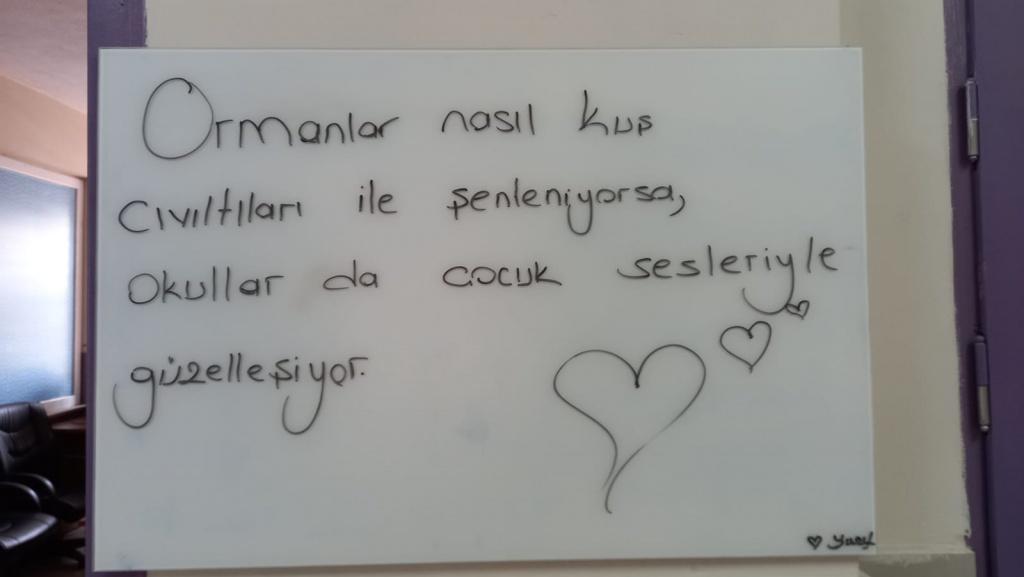 Ormanlar nasıl kuş
cıvıltıları ile şenleniyorsa,
okullar da çocuk sesleriyle
güzelleşiyor.